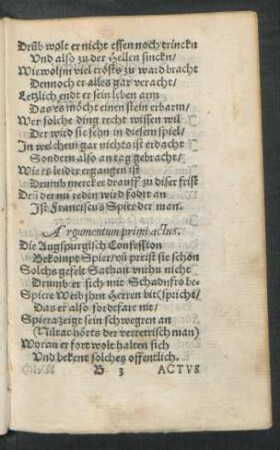 Drüb wolt er nicht essen noch trinckn
Und also zu der Hellen sinckn/
Wiewol jm viel trosts zu ward bracht
Dennoch er alles gar veracht/
Letzlich endt er sein lebn arm
Das es möcht einen stein erbarm/
Wer solche ding recht wissen wil
Der wird sie sehn in diesem spiel/
In welchem gar nichts ist erdacht
Sondern also an tag gebracht/
Wie es leider ergangen ist
Drumb mercket drauff zu diser frist
Den der nu reden wird fodrt an
Ist Franciscus Spier der man.
Argumentum primi actus.
Die Augspurgisch Confession
Bekompt Spier/ uñ preist sie schön
Solchs gefelt Sathan nicht
Drumb er sich mit Schadnfro be-
Spiere Weib jhrn Herren bit (spricht/
Das er also fordefare nit/
Spiera zeigt sein schwegren an
(Nu tac hörts der verretrisch man)
Woran er fort wolt halten sich
Und bekent solches offentlich.
B 3 ACTVS